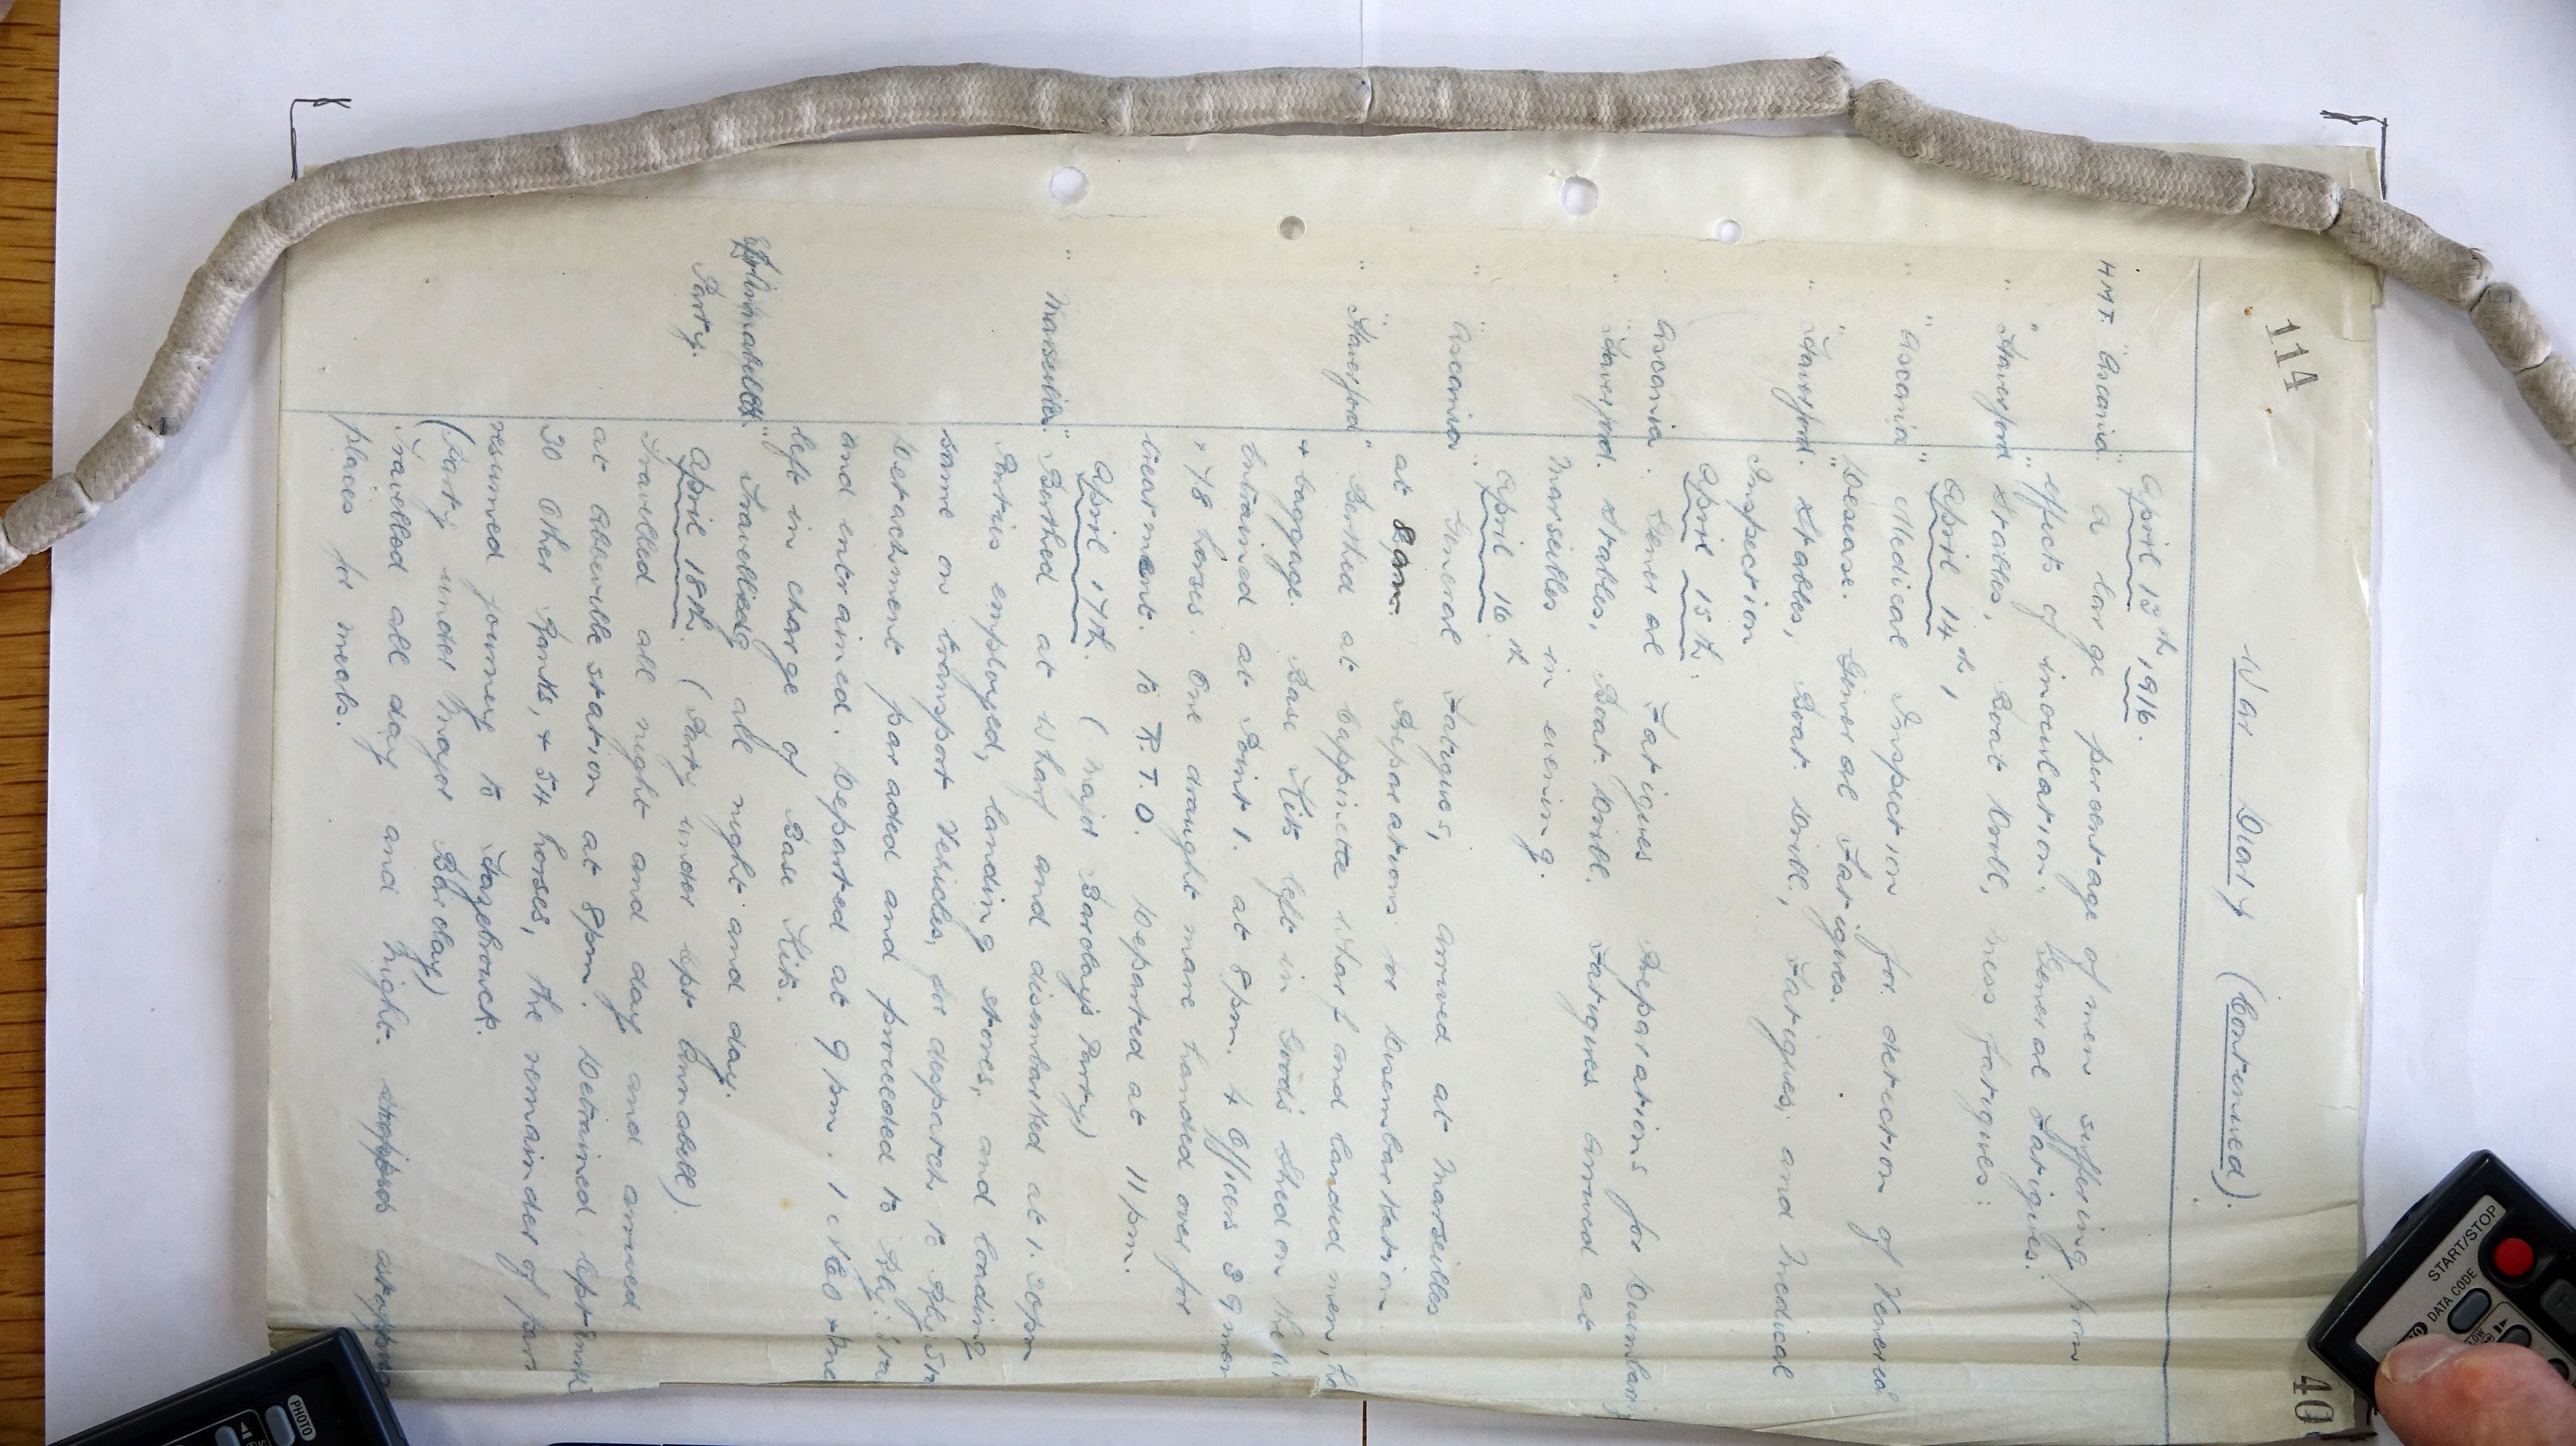 114
40
War Diary (Continued).
April 13th 1916.
HMT. "Ascania" A large percentage of men suffering from
effects of inoculation. General Fatigues.
" "Haverford" Stables, Boat Drill, mess fatigues:
April 14th,
" "Ascania" Medical Inspection for detection of Venereal
Desease. General Fatigues.
" "Haverford" Stables, Boat Drill, Fatigues, and Medical
Inspection
April 15th.
" Ascania. General Fatigues Preparations for
" Haverford. Stables, Boat Drill. Fatigues. Arrived at
Marseilles in evening.
April 16th
" "Ascania" General Fatigues, Arrived at Marseilles
at 8am. Preparations for Disembarkation.
" "Haverford" Berthed at wharf and landed men,
+ baggage. Base Kits left in Goods Shed on the
Entrained at Point 1. at 8pm. 4 Officers 39 men
+ 78 horses. One draught mare handed over for
treatment. to R.T.O. Departed at 11 pm.
April 17th. (Major Barclay's Party)
" Marseilles" Berthed at Wharf and disembarked at 1.30pm
Parties employed, landing stores, and loading
same on transport Vehicles, for despatch to Rly. Stn
Detachment paraded and proceeded to Rly. Stn
and entrained. Departed at 9 pm. 1 NCO + Men
left in charge of Base Kits.
Party. Travelling all night and day.
April 18th. (Party under Capt Annabell).
Travelled all night and day and arrived
at Abbeville station at 8pm. Detrained
30 Other Ranks, + 54 horses, the remainder of
resumed journey to Hazebrouck.
(Party under Major Barclay)
Travelled all day and night.
places for meals.
START/STOP
DATA CODE
PHOTO